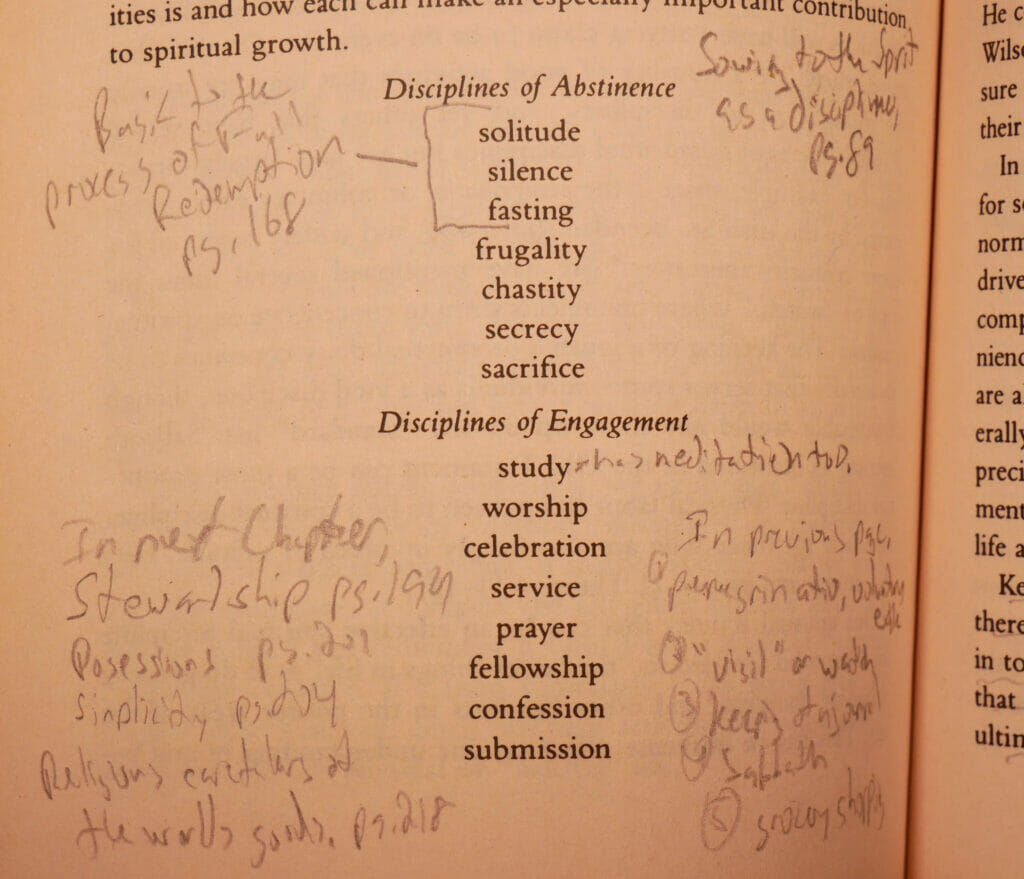 ities is and how each can make an especially important contribution
to spiritual growth.
Basic to the
process of Full
Redemption
pg. 168
Sowing to the Spirit
as a discipline,
pg. 89
Disciplines of Abstinence
solitude
silence
fasting
frugality
chastity
secrecy
sacrifice
Disciplines of Engagement
study has meditation too.
worship
celebration
service
prayer
fellowship
confession
submission
In next Chapter,
Stewardship pg. 194
Posessions pg. 201
Simplicity pg. 204
Religious caretakers of
the worlds goods. pg. 218
In previous page,
① voluntary
exile
② "vigil" or watch
③ keeping
④ Sabbath
⑤ grocery shopping
He c
Wils
sure
their
In
for s
norm
drive
comp
nienc
are a
erally
preci
ment
life a
Ke
there
in to
that
ultin